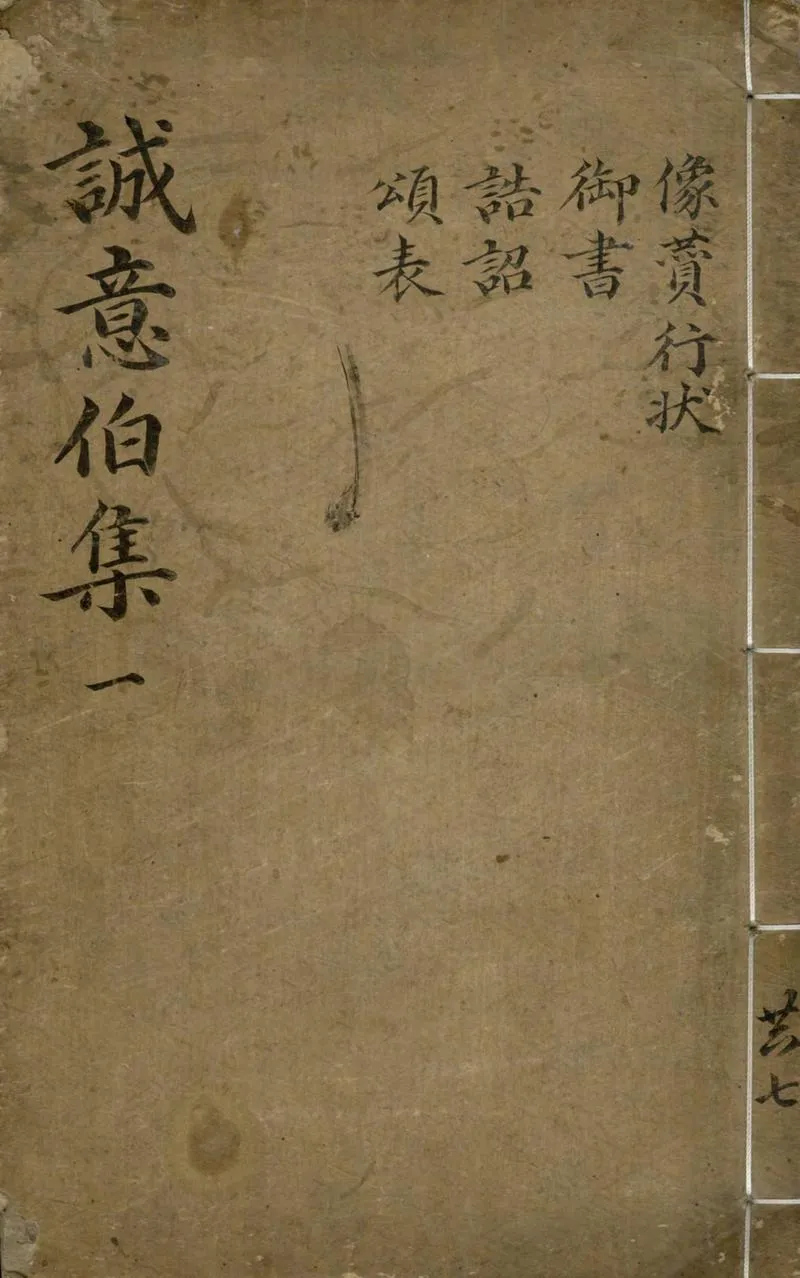 像蕒行状
御書
誥詔
頌表
誠意伯集 一
共七